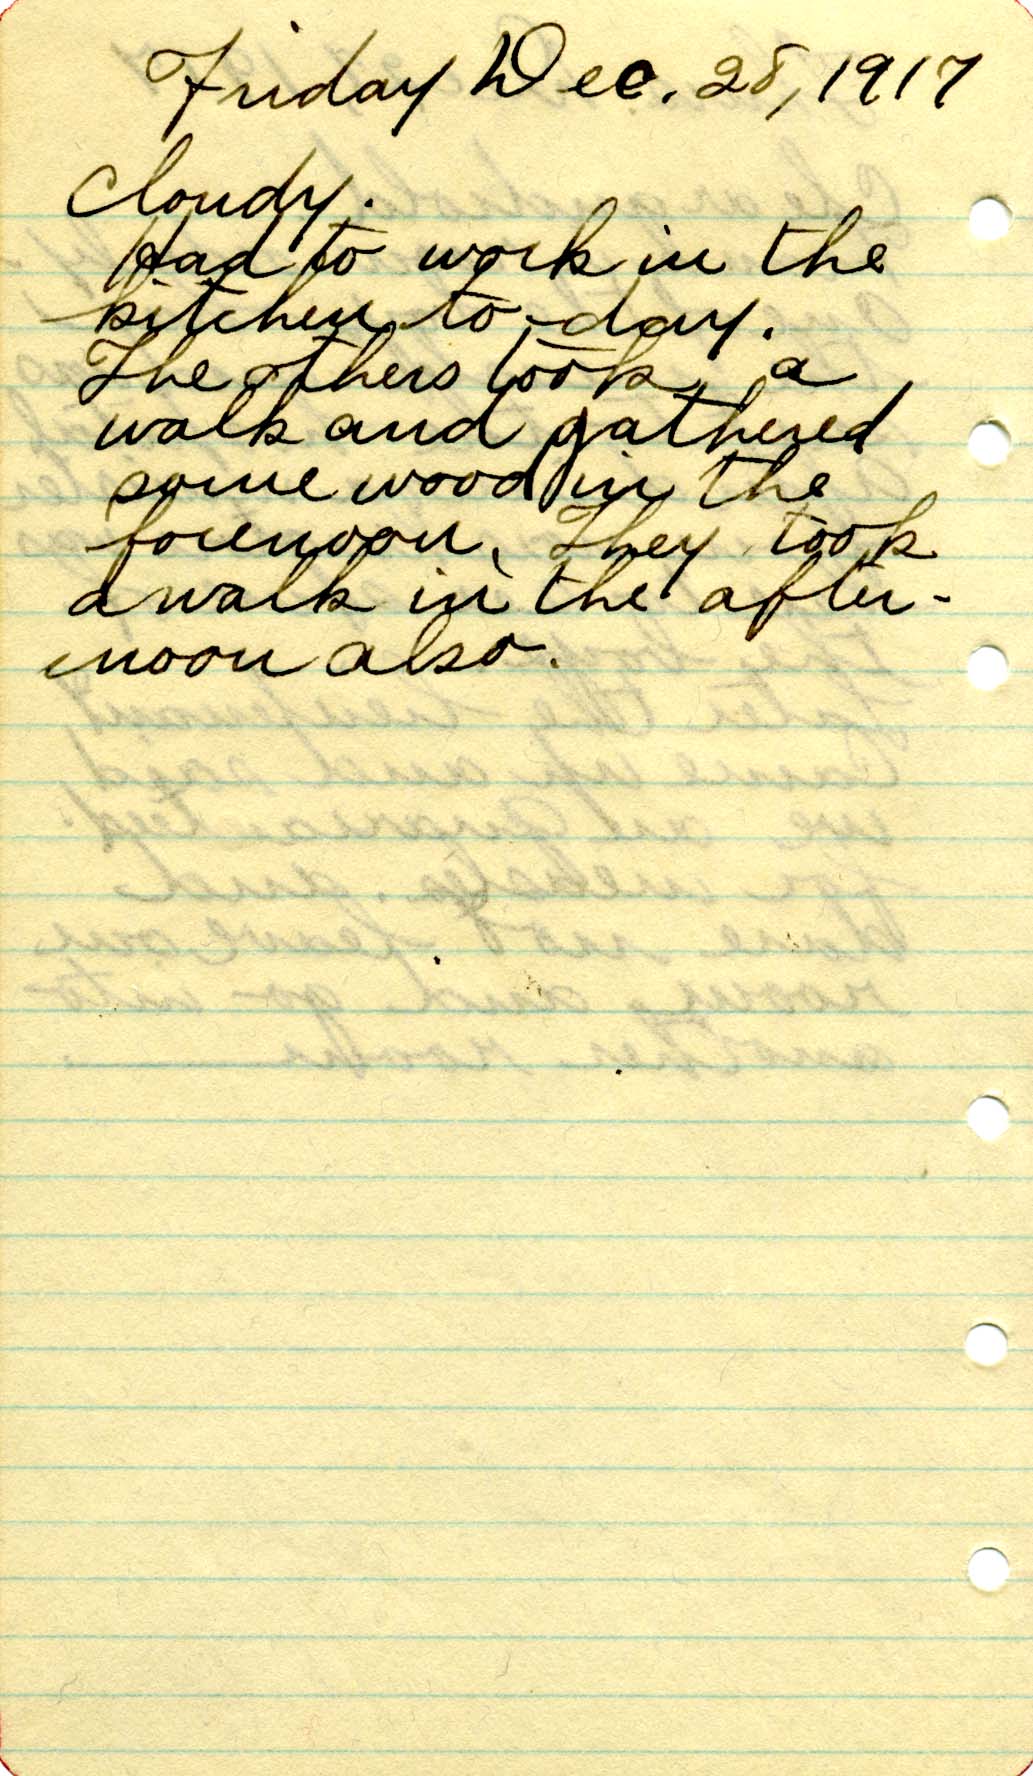 Friday Dec. 28, 1917
Cloudy.
Had to work in the
kitchen to-day.
The others took a
walk and gathered
some wood in the
forenoon. They took
a walk in the after-
noon also.